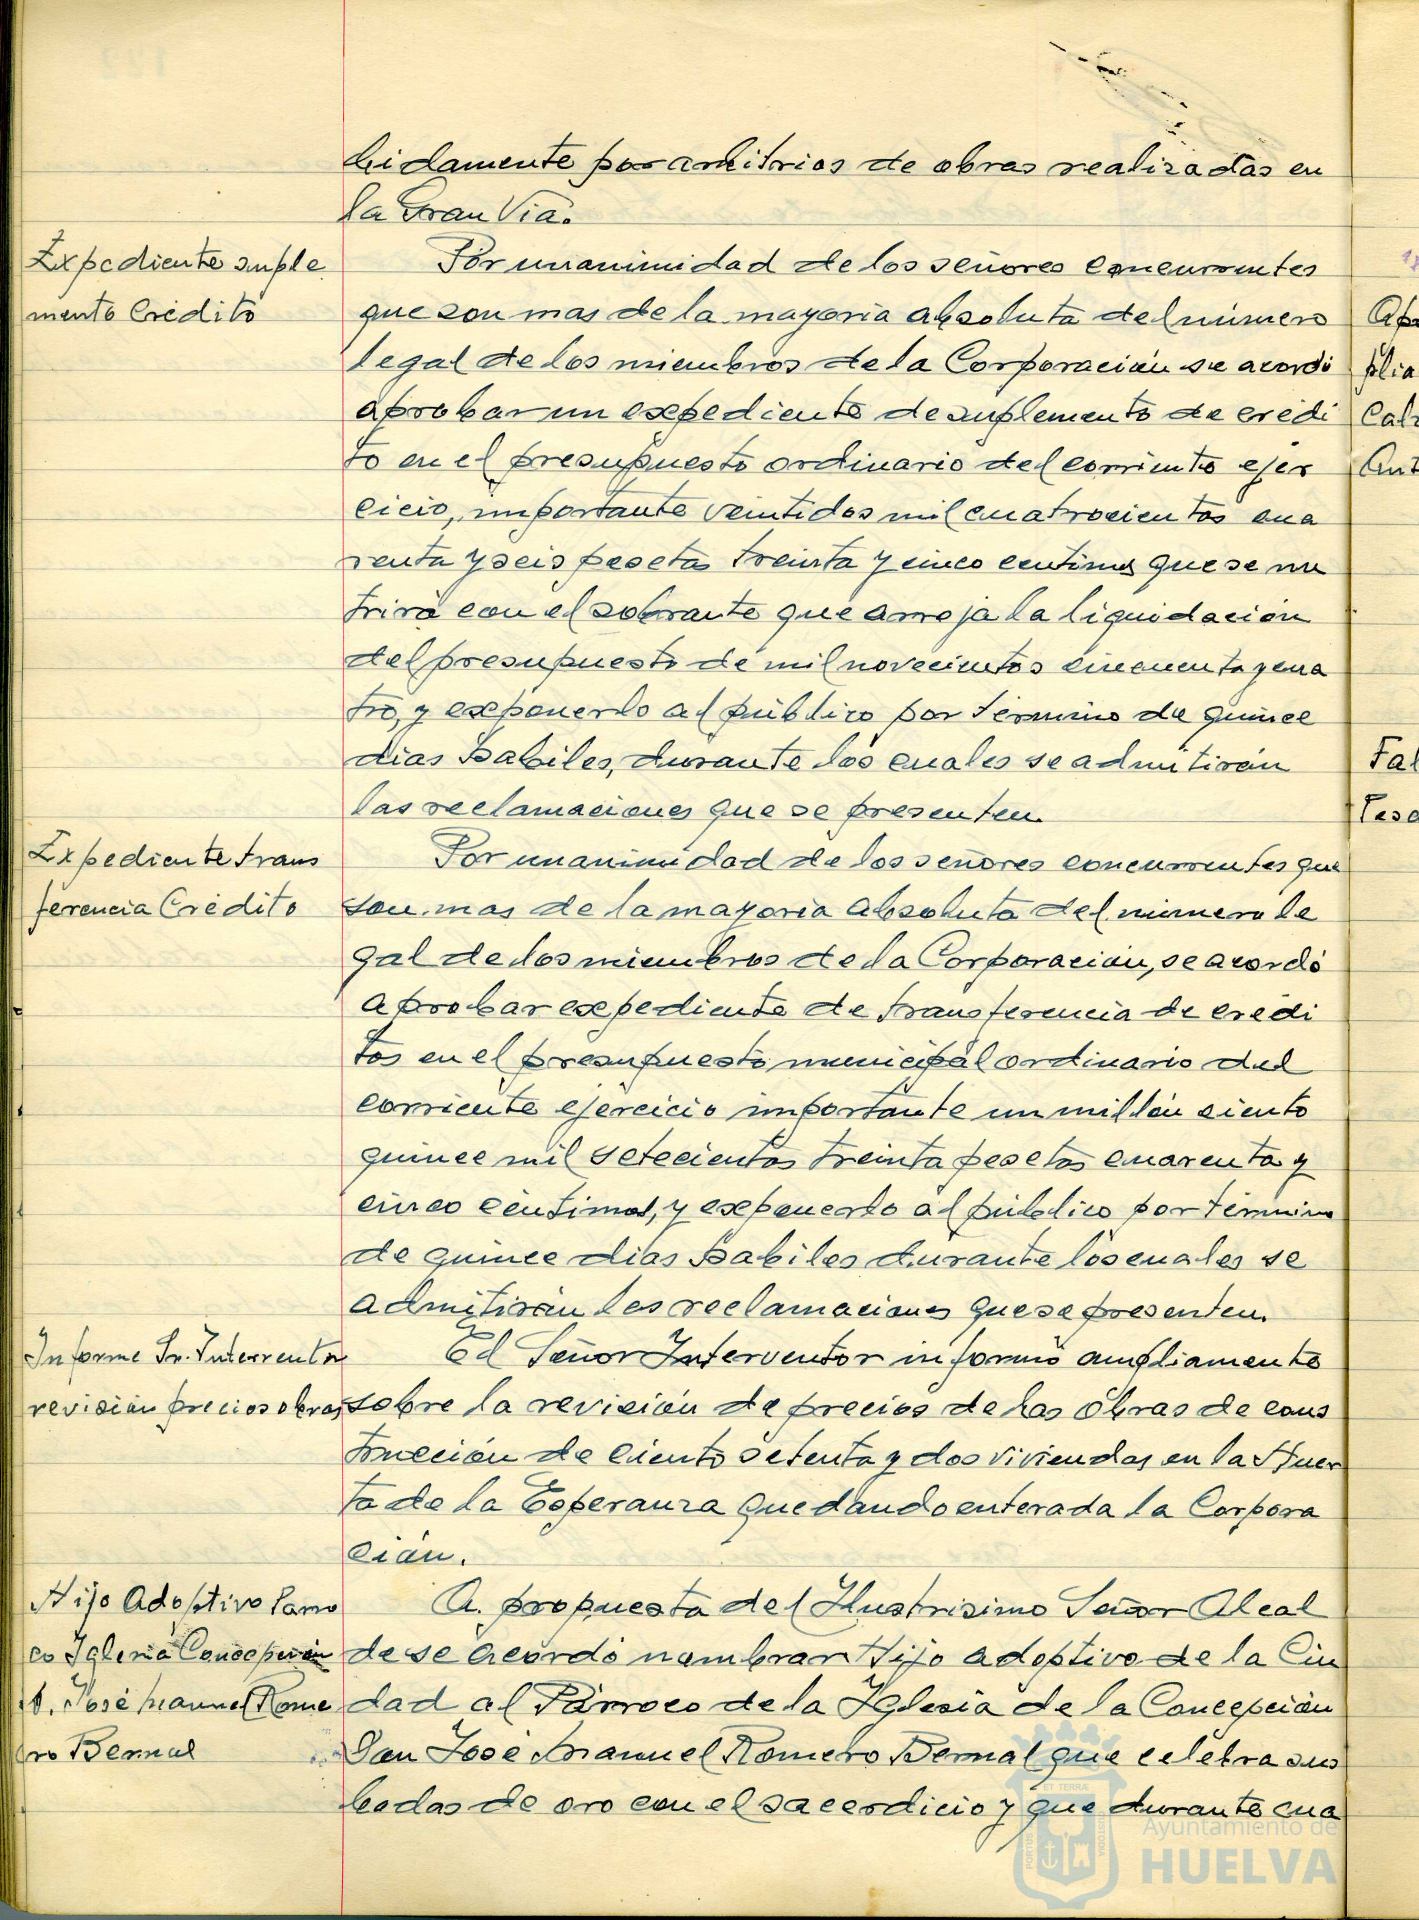 bidamente por arbitrios de obras realizadas en
la Gran Vía.
Expediente suple
mento Crédito
Por unanimidad de los señores concurrentes
que son mas de la mayoria absoluta del número
legal de los miembros de la Corporación se acordó
aprobar un expediente de suplemento de crédi
to en el presupuesto ordinario del corriente ejer
cicio, importante veintidos mil cuatrocientas cua
renta y seis pesetas treinta y cinco centimos que se nu
trirá con el sobrante que arroja la liquidación
del presupuesto de mil novecientos cincuenta y cua
tro, y exponerlo al público por término de quince
dias habiles, durante los cuales se admitirán
las reclamaciones que se presenten.
Expediente trans
ferencia Crédito
Por unanimidad de los señores concurrentes que
son mas de la mayoria absoluta del número le
gal de los miembros de la Corporación, se acordó
aprobar expediente de transferencia de crédi
tos en el presupuesto municipal ordinario del
corriente ejercicio importante un millón ciento
quince mil setecientas treinta pesetas cuarenta y
cinco céntimos, y exponerlo al público por término
de quince dias habiles durante los cuales se
admitirán las reclamaciones que se presenten.
Informe Sr. Interventor
revisión precios obras
El Señor Interventor informó ampliamente
sobre la revisión de precios de las obras de cons
trucción de ciento setenta y dos viviendas en la Huer
ta de la Esperanza quedando enterada la Corpora
ción.
Hijo Adoptivo Parro
co Iglesia Concepción
D. José Manuel Rome
ro Bernal
A propuesta del Ilustrisimo Señor Alcal
de se acordó nombrar Hijo adoptivo de la Ciu
dad al Párroco de la Iglesia de la Concepción
Don José Manuel Romero Bernal que celebra sus
bodas de oro con el sacerdicio y que durante cua
Ap
plia
Fal
Ayuntamiento de
HUELVA